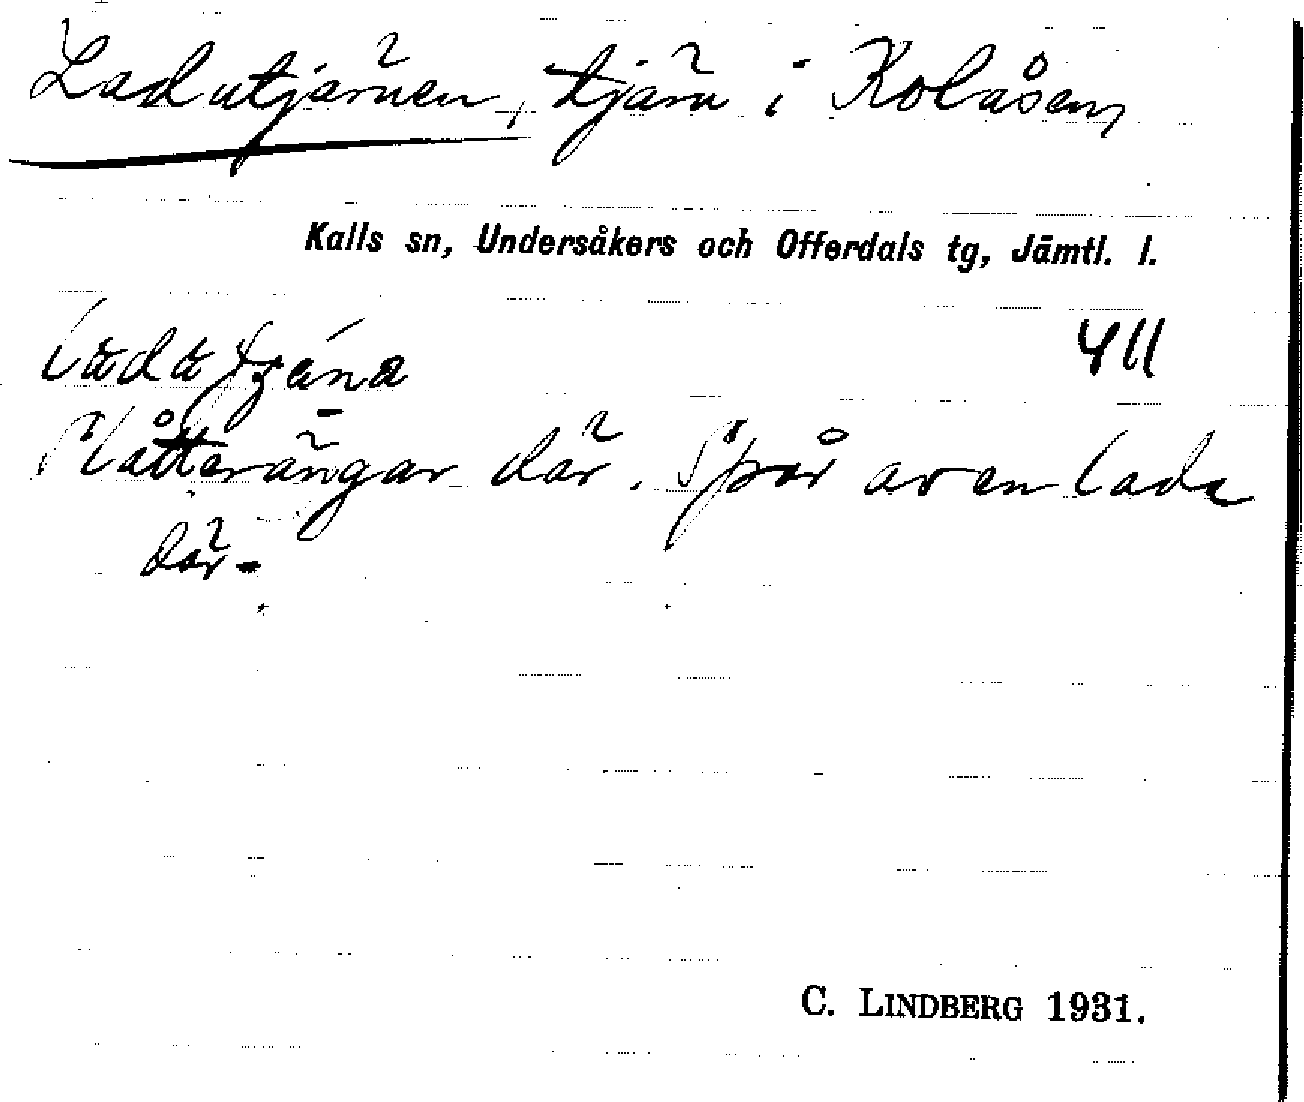 Ladutjärnen, tjärn i Kolåsen,
Kalls sn, Undersåkers och Offerdals tg, Jämtl. l.
411
Slåtterängar där. Spår av en lada
där.
C. LINDBERG 1931.